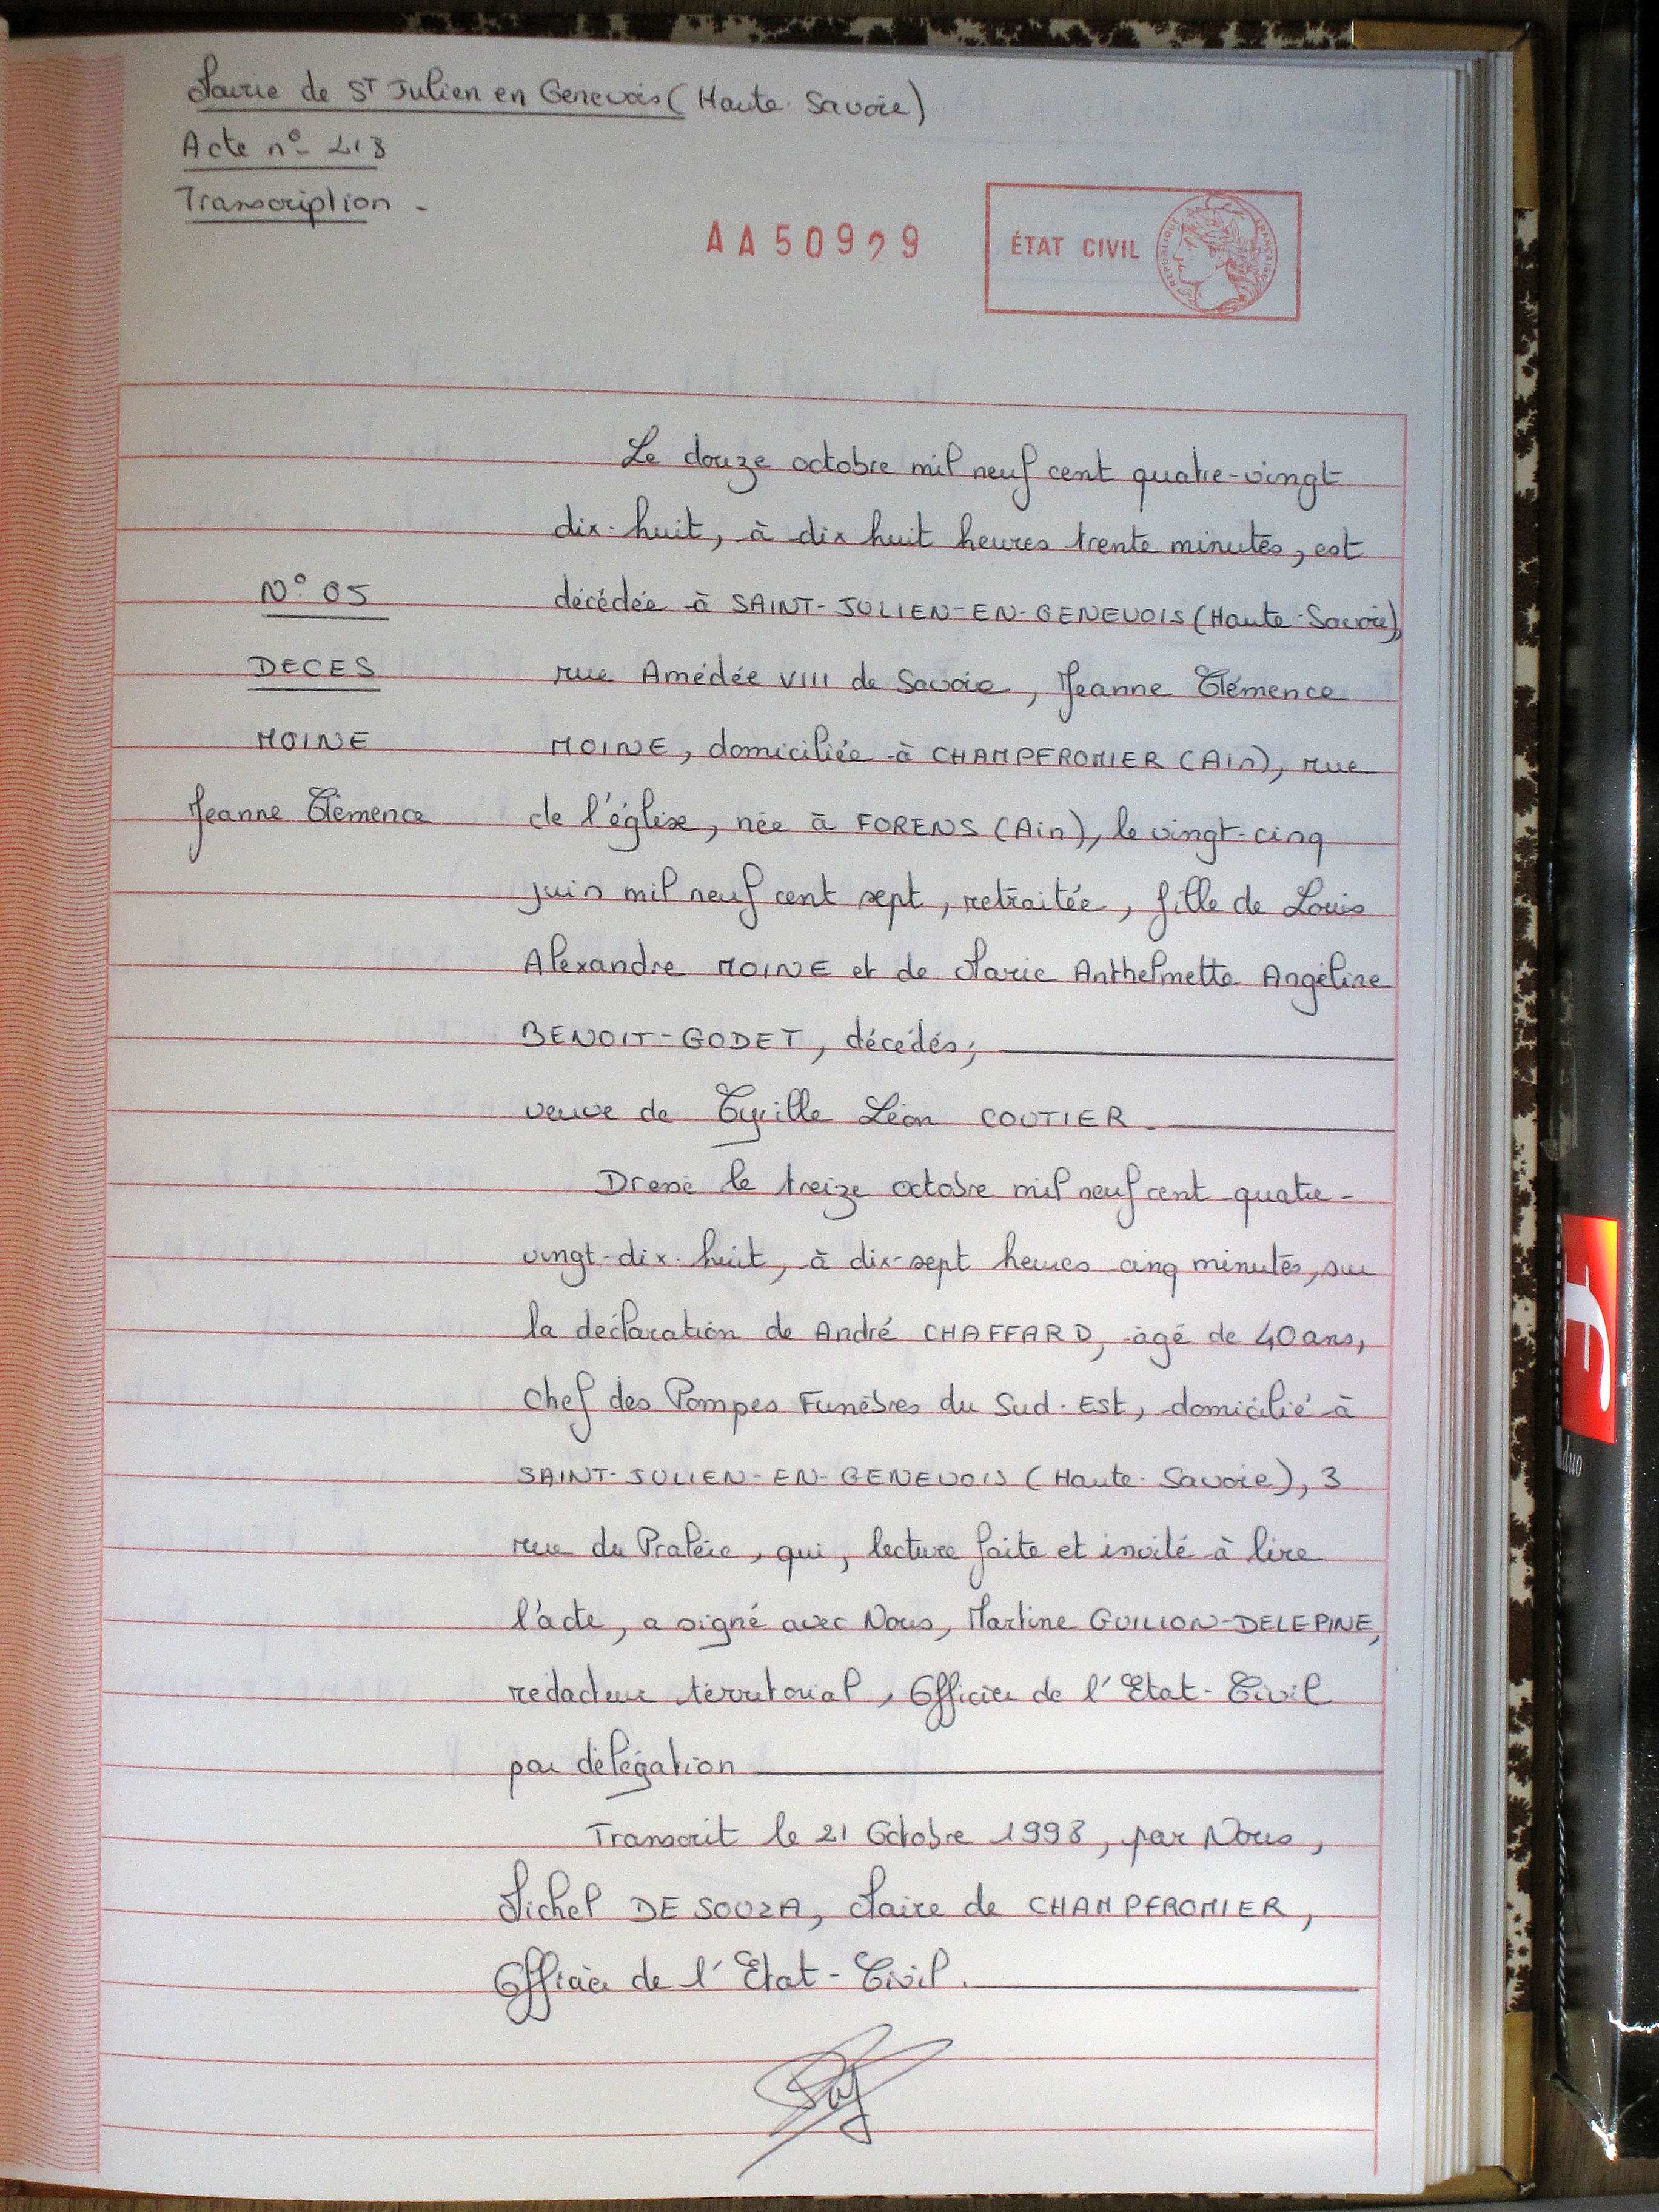 Mairie de St Julien en Genevois (Haute-Savoie)
Acte n° 218
Transcription -
AA50929
ÉTAT CIVIL
RÉPUBLIQUE FRANÇAISE
Le douze octobre mil neuf cent quatre-vingt
dix-huit, à dix huit heures trente minutes, est
N° 05
décédée à SAINT-JULIEN-EN-GENEVOIS (Haute-Savoie),
DECES
rue Amédée VIII de Savoie, Jeanne Clémence
MOINE
MOINE, domiciliée à CHAMPFROMIER (Ain), rue
Jeanne Clémence
de l'église, née à FORENS (Ain), le vingt-cinq
juin mil neuf cent sept, retraitée, fille de Louis
Alexandre MOINE et de Marie Anthelmette Angéline
BENOIT-GODET, décédés;
veuve de Cyrille Léon COUTIER.
Dressé le treize octobre mil neuf cent quatre-
vingt-dix-huit, à dix-sept heures cinq minutes, sur
la déclaration de André CHAFFARD, âgé de 40 ans,
Chef des Pompes Funèbres du Sud-Est, domicilié à
SAINT-JULIEN-EN-GENEVOIS (Haute-Savoie), 3
rue du , qui, lecture faite et invité à lire
l'acte, a signé avec Nous, Martine GUILLON-DELEPINE,
rédacteur territorial, Officier de l'Etat-Civil
par délégation
Transcrit le 21 Octobre 1998, par Nous,
Michel DE SOUZA, Maire de CHAMPFROMIER,
Officier de l'Etat-Civil.
duo